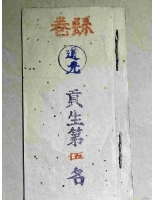 縣卷
道光
貢生第伍名